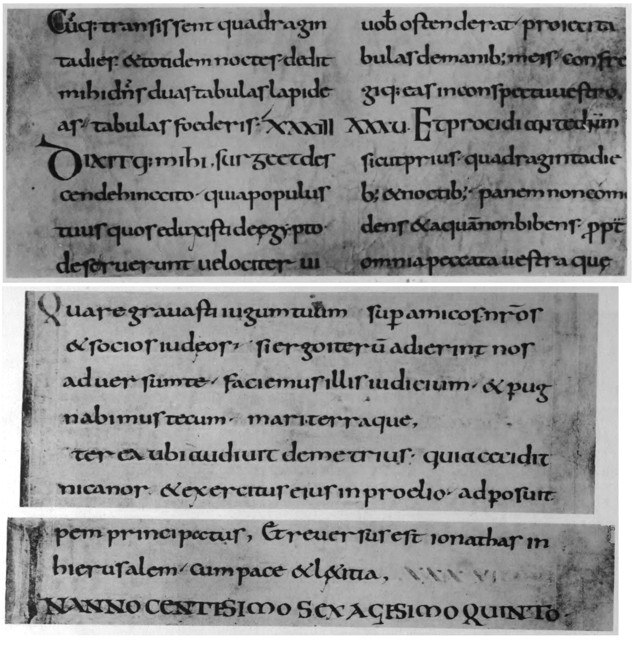 Cūq: transissent quadragin
ta dies. & totidem noctes. dedit
mihi dn̄s duas tabulas lapide
as. tabulas foederis. XXXIIII
Dixitq: mihi. surge et des
cende hinc cito. quia populus
tuus quos eduxisti de ęgypto.
deseruerunt uelociter ui
uob̄ ostenderat. proieci ta
bulas de manib; meis. confre
giq: eas in conspectu uestro.
XXXU. Et procidi ante dn̄m
sicut prius. quadraginta die
b; & noctib; panem non com
dens & aquā non bibens. ꝓpt̄
omnia peccata uestra quę
Quare grauasti iugum tuum sup̄ amicos nr̄os
& socios iudęos, si ergo iterū adierint nos
aduersum te. faciemus illis iudicium. & p̄ug
nabimus tecum. mari terraque,
ter ea ubi audiuit demetrius. quia cecidit
nicanor. & exercitus eius in proelio. adposuit
pem principatus, Et reuersus est ionathas in
hierusalem. cum pace & lętitia,
IN ANNO CENTISIMO SEXAGISIMO QUINTO